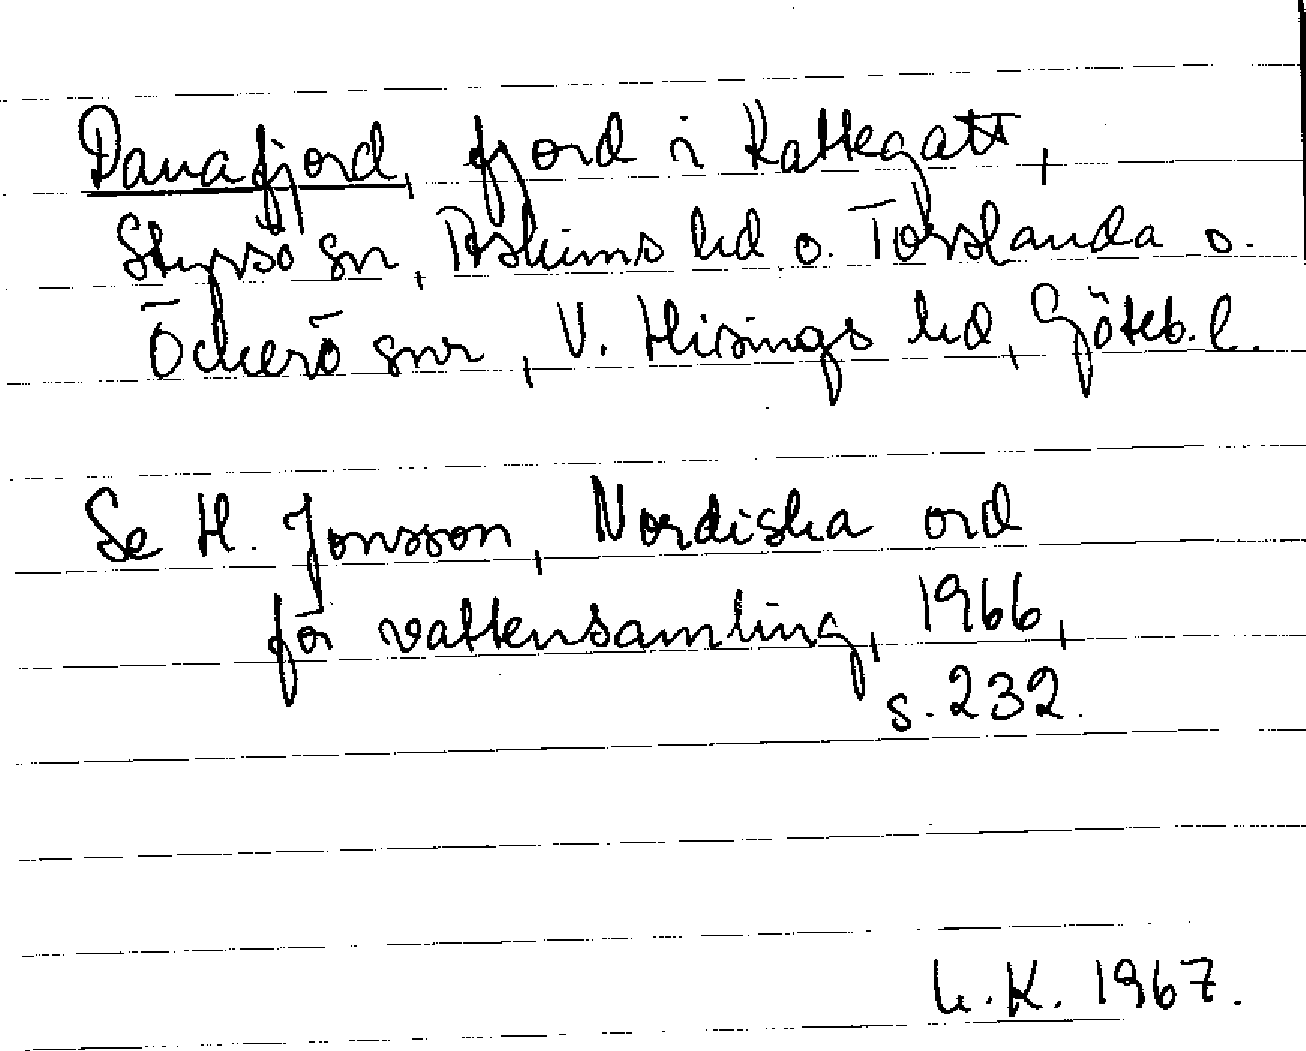 Danafjord, fjord i Kattegatt,
Styrsö sn, Askims hd o. Torslanda o.
Öckerö snr, V. Hisings hd, Göteb. l.
Se H. Jonsson, Nordiska ord
för vattensamling, 1966,
s. 232.
K. 1967.